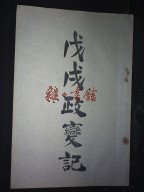 戊戌政變記